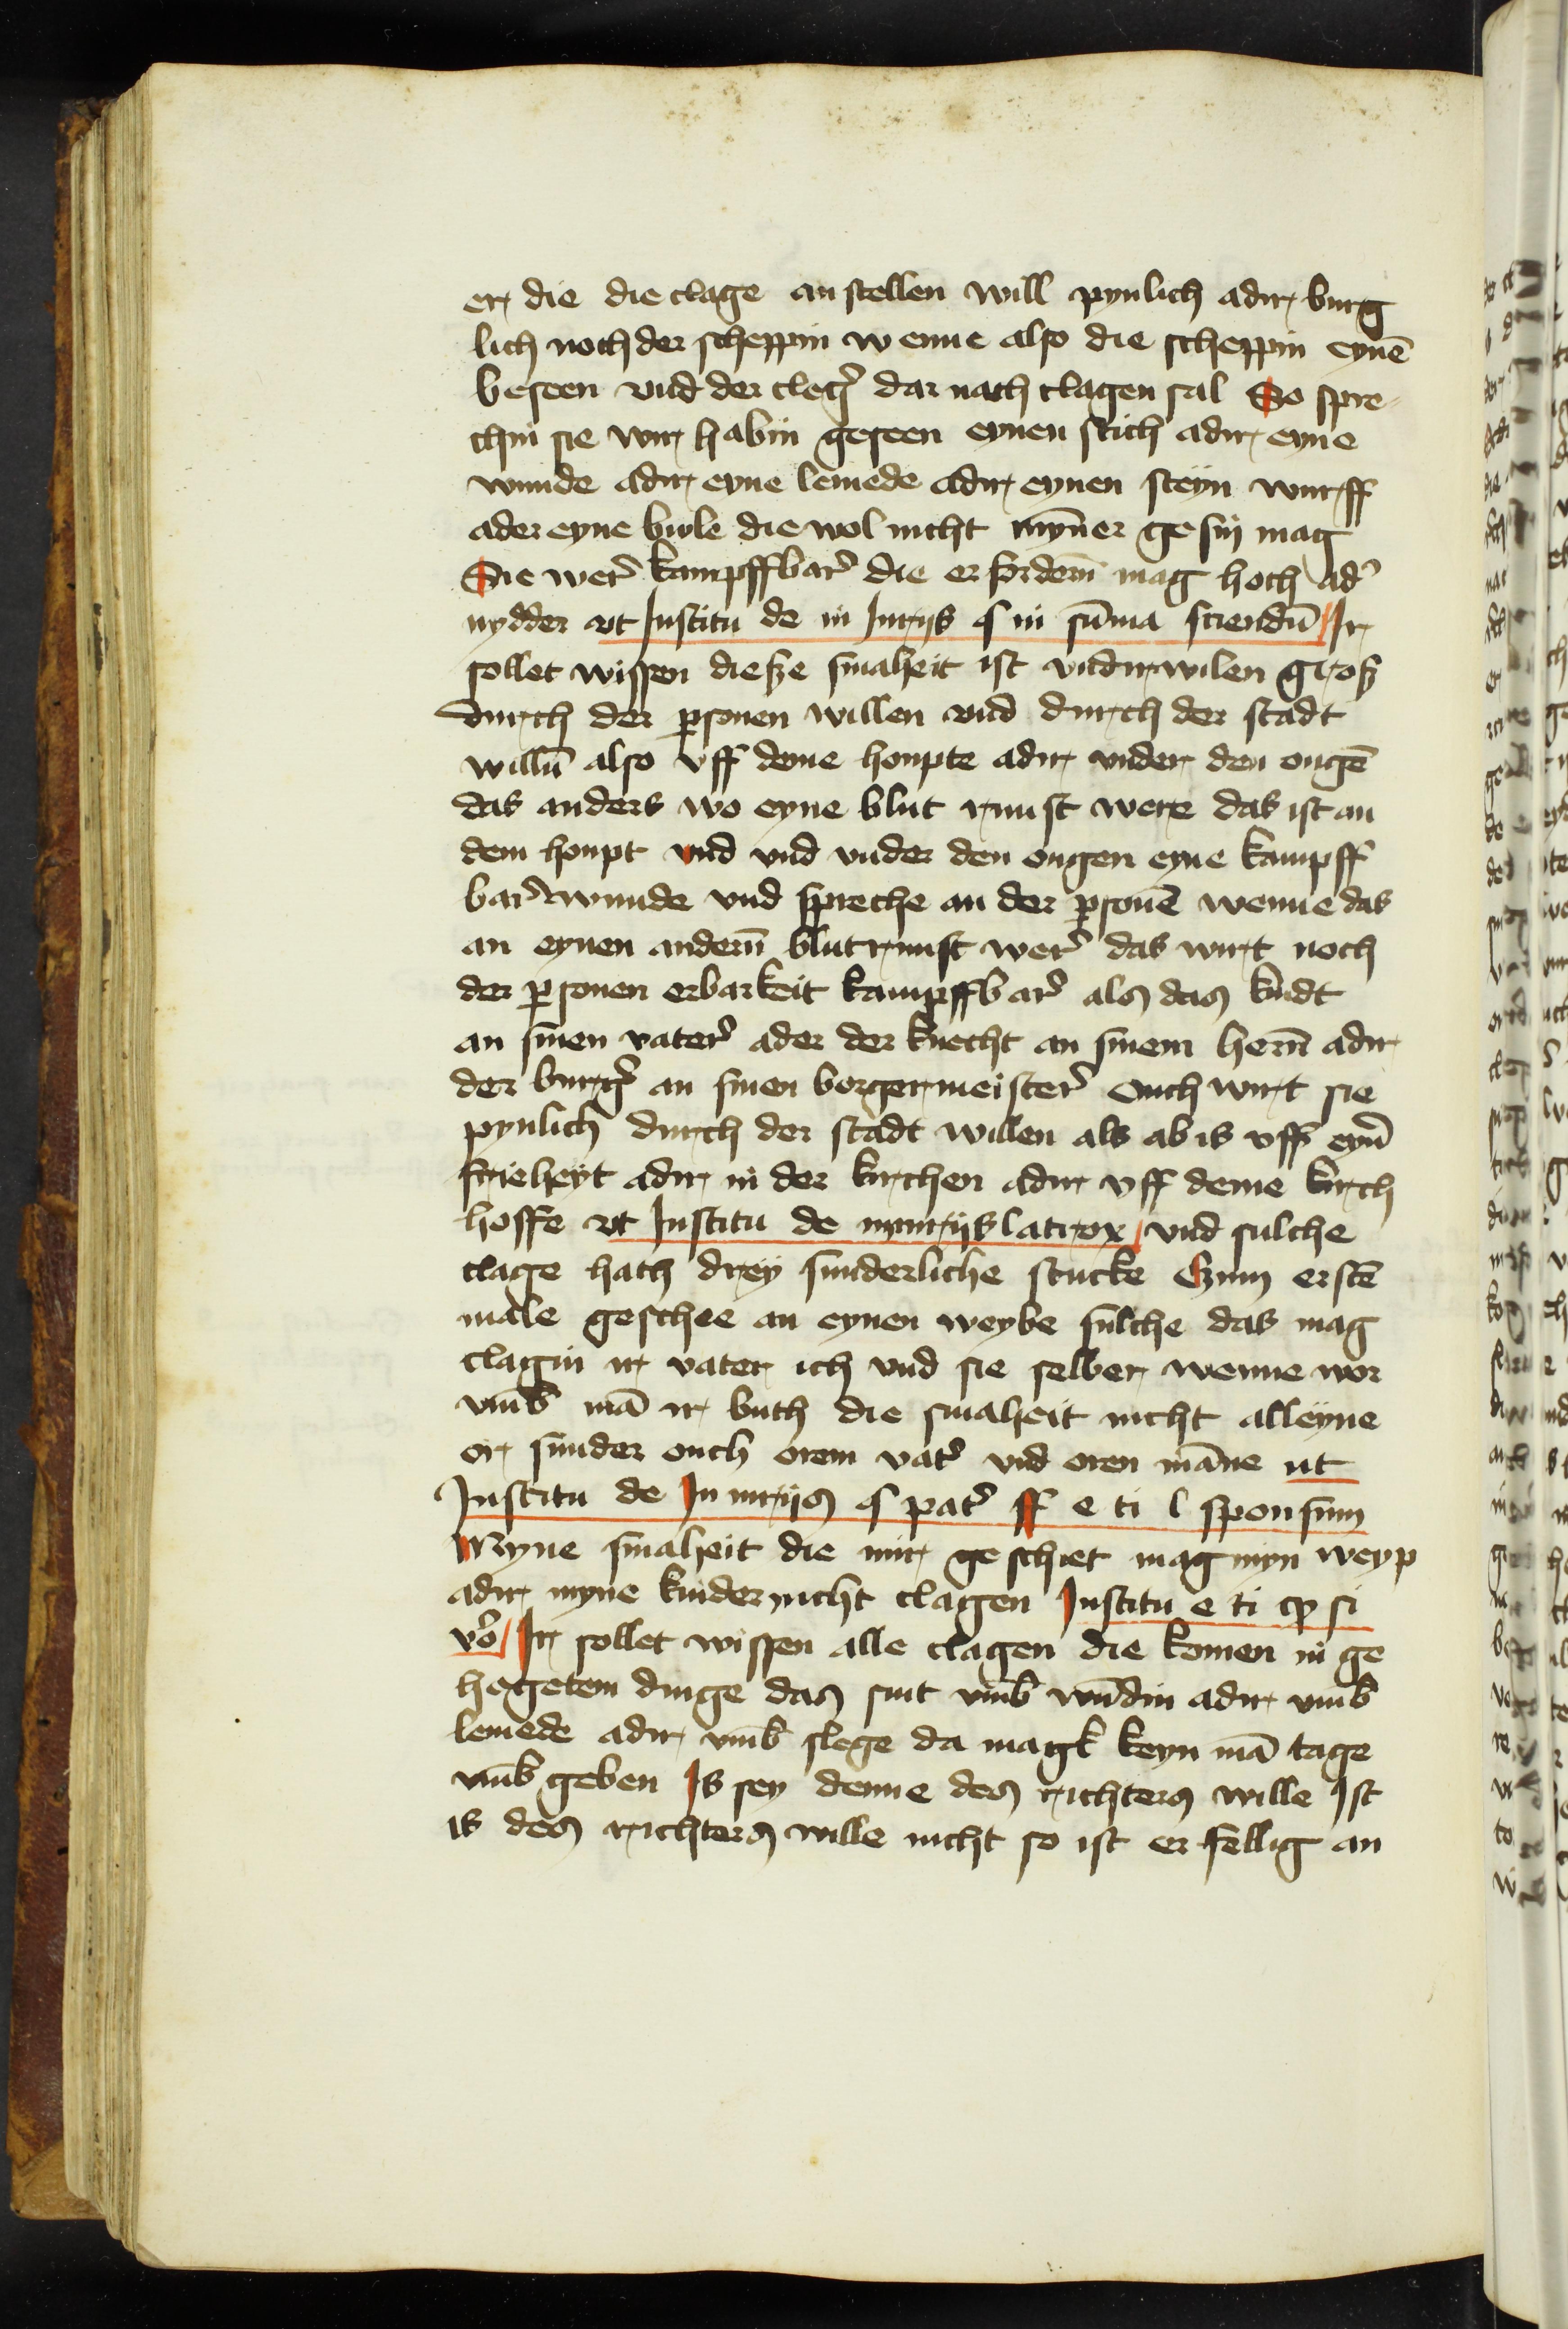 er die die clage an stellen will pynlich adir burg
lich noch der scheppin wenne also die scheppin eynē
beseen vnd der cleg̓ dar nach clagen sal So spre-
chin sie wir habin geseen eynen stich adir eyne
wunde adir eyne lemede adir eynen steyn wurff
ader eyne bule die wol nicht mynner ge sin mag
Sie wer̓ kampffbar̓ die er fordern̄ mag hoch ad̓
nydder vt Institu de in Iurijs § in sūma sciendū Ir
sollet wissen diesze smaheit ist vndirwilen grosz
durch der ꝑsonen willen vnd durch der stadt
willn̄ also vff deme houpte adir vnder den ougē
das anders wo eyne blut runst were das ist an
dem houpt vnd vnd vnder den ougen eyne kampff
bar̓ wunde vnd spreche an der ꝑsonē wenne das
an eynen andern̄ blutrunst wer̓ das wirt noch
der ꝑsonen erbarkeit kampffbar̓ als das kindt
an sinen vater̓ ader der knecht an sinem hern̄ adir
der burg̓ an sinen borgermeister̓ Ouch wirt sie
pynlich durch der stadt willen als ab is vff eyn̓
frieheyt adir in der kirchen adir vff deme kirch
hoffe vt Institu de iniurijs l atrox vnd sulche
clage hath drey sunderliche stucke Czum erstē
male geschee an eynen weybe sulche das mag
clagin ir vater ich vnd sie selber wenne wor
vm̄b mā ir buth die smaheit nicht alleyne
or sunder ouch orem vat̓ vnd oren māne ut
Institu de In iurijs § pat̓ ff e ti l sponsum
Myne smaheit die mir ge schiet mag myn weyp
adir myne kinder nicht clagen Institu e ti cp si
vo̓ Ir sollet wissen alle clagen die komen in ge
hegetem dinge das sint vm̄b wūdin adir vm̄b
lemede adir vm̄b slege da magk keyn mā tage
vm̄b geben Is sey denne des richters wille Ist
is des richters wille nicht so ist er fellig an